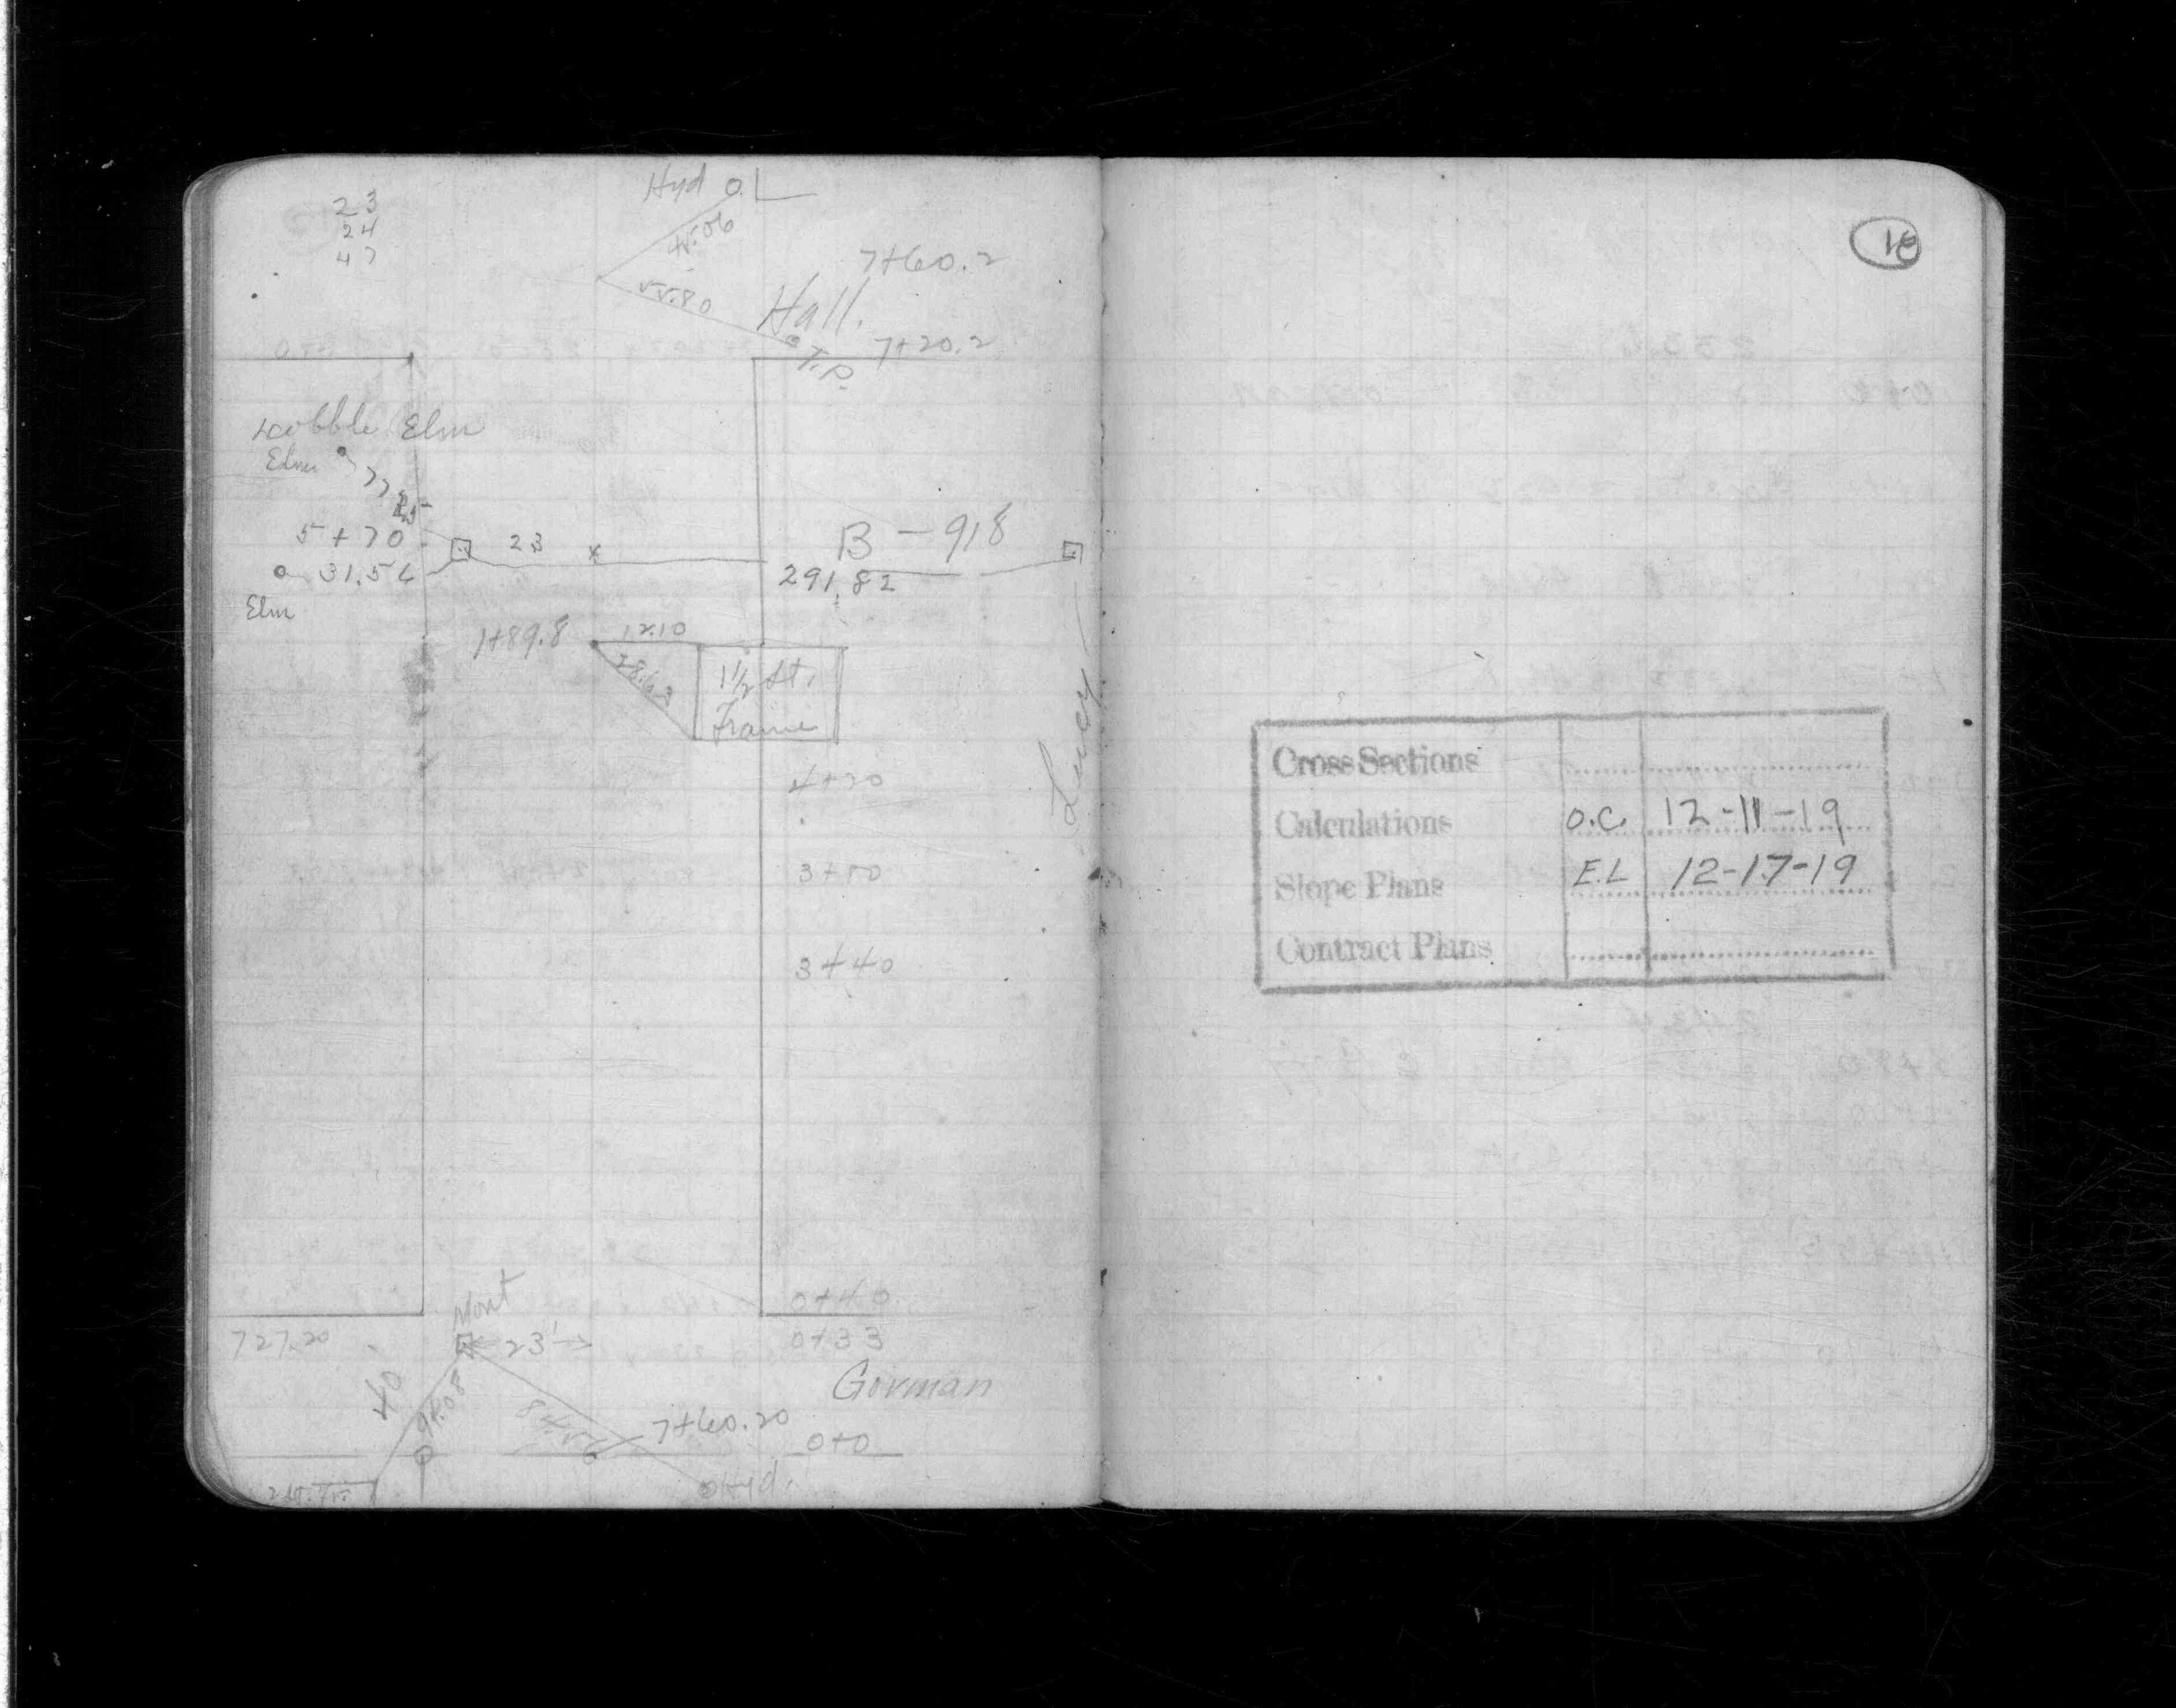 23
24
47
Hyd
55.80
7+60.2
Hall.
7+20.2
T.P.
wobble Elm
Elm
5+70
23
B-918
31.54
291.82
Elm
1+89.8
12.10
28.63
1½ St.
Frame
Lucy
4+30
3+80
3+40
0+40
Mont
727.20
23'
0+33
40
94.08
Gorman
7+60.20
0+0
2 St. Fr.
Hyd.
18
Cross Sections
Calculations O.C. 12-11-19
Slope Plans E.L 12-17-19
Contract Plans